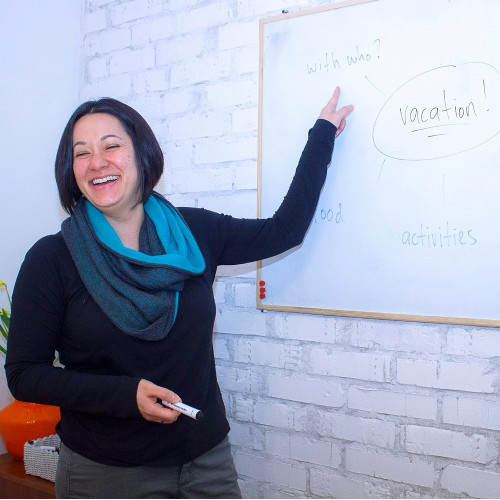 with who?
vacation!
activities